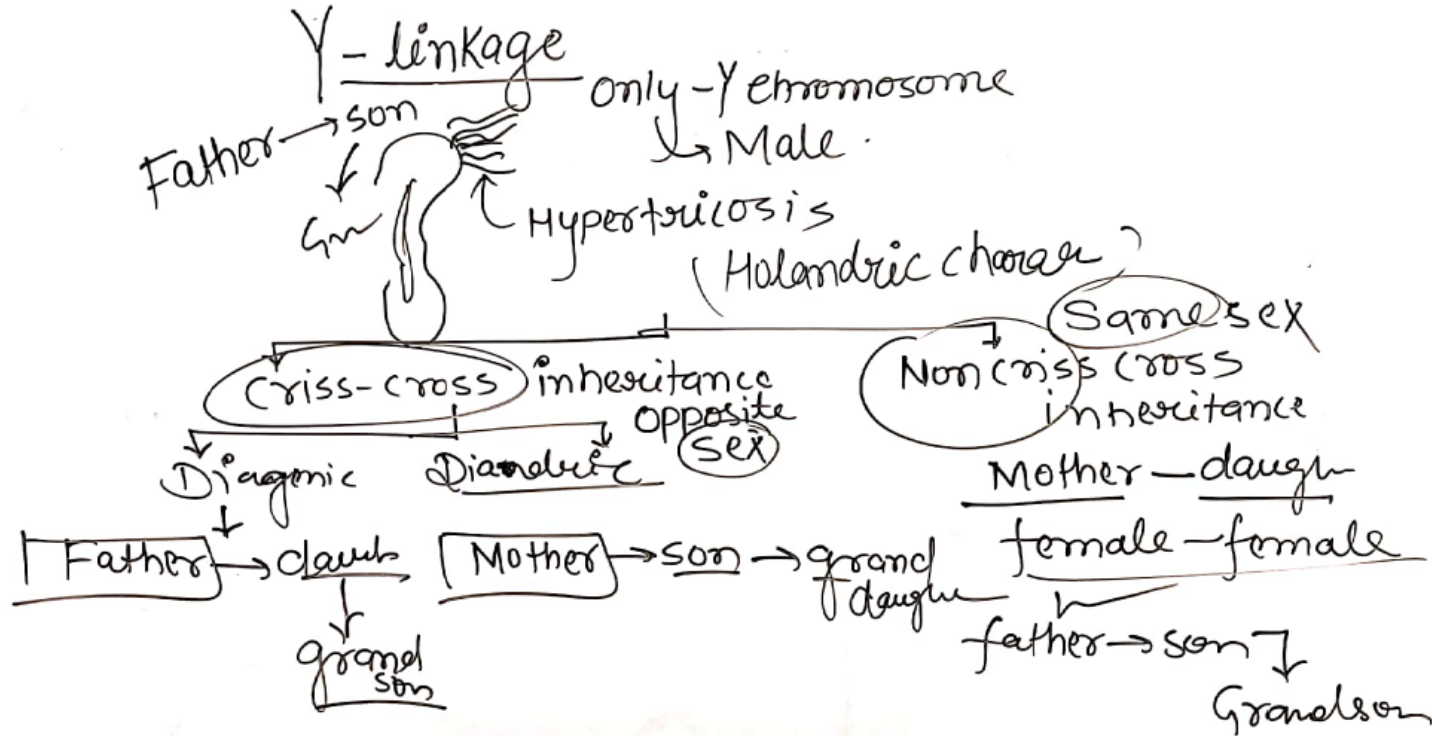 Y-linkage
only-Y chromosome
↳ Male.
Father → son
↓
Gn
Hypertricosis
(Holandric charac )
Criss-cross inheritance
opposite
sex
Same sex
Non criss cross
inheritance
Diagenic Diandric
↓
Father → daub
↓
grand
son
Mother → son → grand
daugh
Mother - daugh
female - female
father → son
↓
Grandson